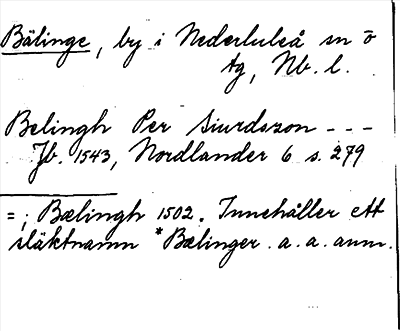 Bälinge, by i Nederluleå sn ö
tg, Nb. l.
Belingh Per Siurdszon - - -
Jb. 1543, Nordlander 6 s. 279
= ; Bælingh 1502. Innehåller ett
släktnamn *Bælinger. a. a. anm.